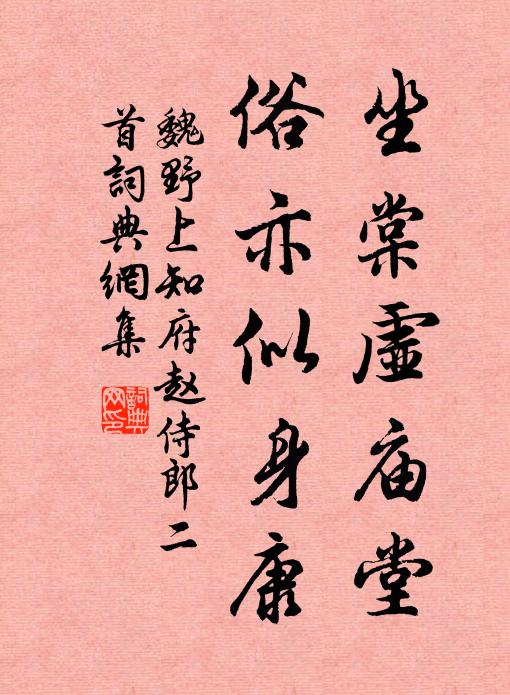 坐棠虚庙堂
俗亦似身康
魏野上知府赵侍郎二
首詞典網集
詞典
网印